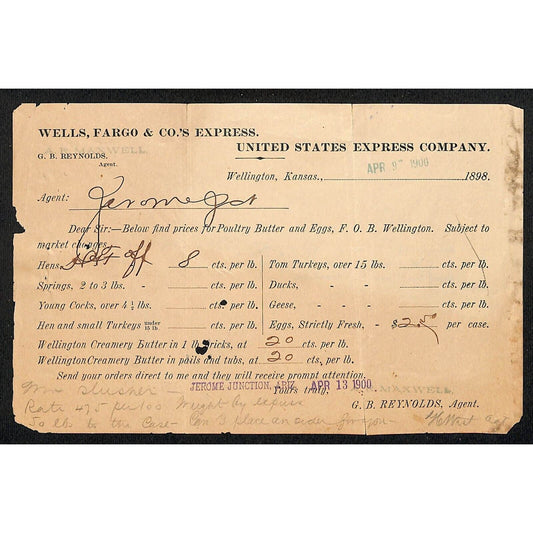 WELLS, FARGO & CO.'S EXPRESS.
A. R. MAXWELL
UNITED STATES EXPRESS COMPANY.
G. B. REYNOLDS,
Agent.
APR 9 1900
Wellington, Kansas., 1898.
Agent: Jerome Jct
Dear Sir:—Below find prices for Poultry Butter and Eggs, F. O. B. Wellington. Subject to
market changes.
Hens, off 8 cts. per lb.
Springs, 2 to 3 lbs. - cts. per lb.
Young Cocks, over 4½ lbs. cts. per lb.
Hen and small Turkeys under 15 lb. cts. per lb.
Tom Turkeys, over 15 lbs. cts. per lb.
Ducks, - - cts. per lb.
Geese, - - cts. per lb.
Eggs, Strictly Fresh, - $2.50 per case.
Wellington Creamery Butter in 1 lb bricks, at 20 cts. per lb.
Wellington Creamery Butter in pails and tubs, at 20 cts. per lb.
Send your orders direct to me and they will receive prompt attention.
JEROME JUNCTION, ARIZ. APR 13 1900
Yours truly,
MAXWELL,
G. B. REYNOLDS, Agent.
Mr Slusher -
Rate 4.75 per 100 Weight By express
50 lb to the Case - Can I place an order for you - Agt